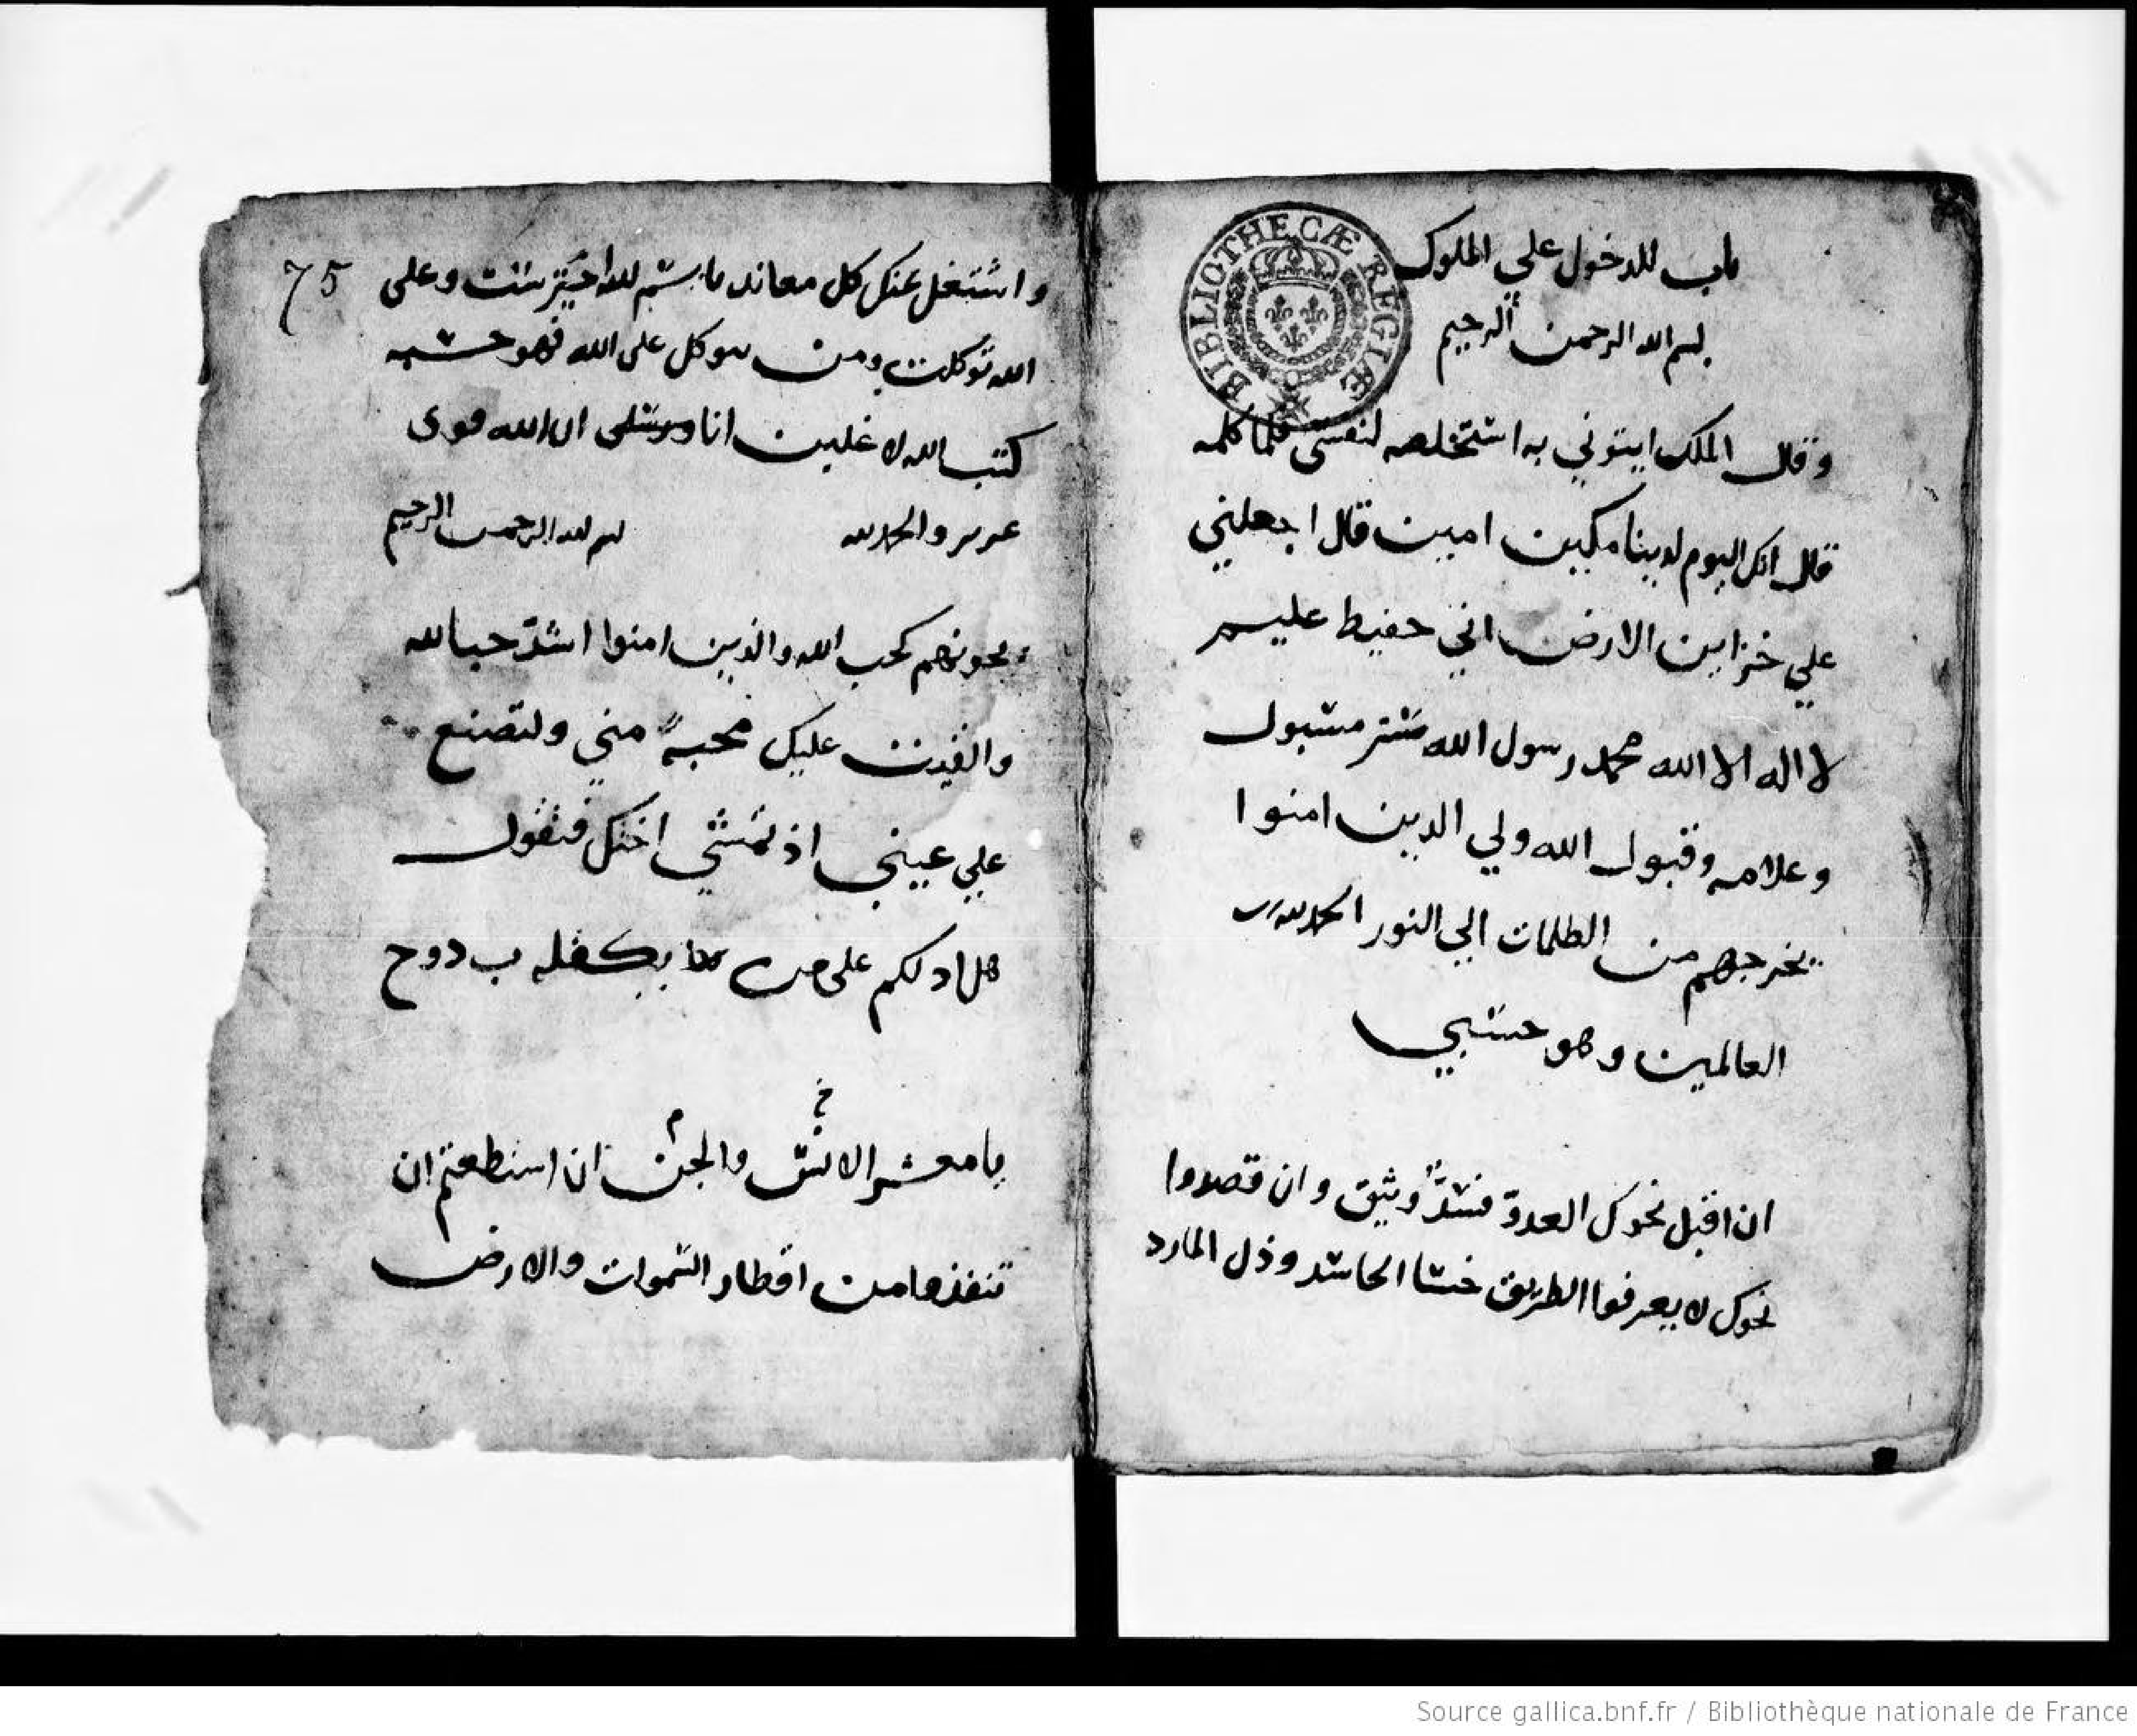 باب للدخول علي الملوك
بسم الله الرحمن الرحيم
وقال الملك ايتوني به استخلصه لنفسي فلما كلمه
قال انك اليوم لدينا مكين امين قال اجعلني
علي خزاين الارض اني حفيط عليم
لا اله الا الله محمد رسول الله ستر مسبول
وعلامه وقبول الله ولي الدين امنوا
يخرجهم من الطلمات الي النور الحمد لله رب
العالمين وهو حسبي
ان اقبل نحوك العدو فسد وثيق وان قصدوا
نحوك لا يعرفوا الطريق خسا الحاسد وذل المارد
BIBLIOTHECÆ REGIÆ
75
واشتغل عنك كل معاند بسم الله وعلى
الله توكلت ومن يتوكل على الله فهو حسبه
كتب الله لاغلبن انا ورسلى ان الله قوى
عزيز والحمد لله بسم الله الرحمن الرحيم
يحبونهم كحب الله والذين امنوا اشدّ حبا لله
والقيت عليك محبةً مني ولتصنع
علي عيني اذ تمشي اختك فتقول
هل ادلكم على من يكفله ب دوح
يا معشر الانس والجن ان استطعتم ان
تنفذوا من اقطار السموات والارض
Source gallica.bnf.fr / Bibliothèque nationale de France